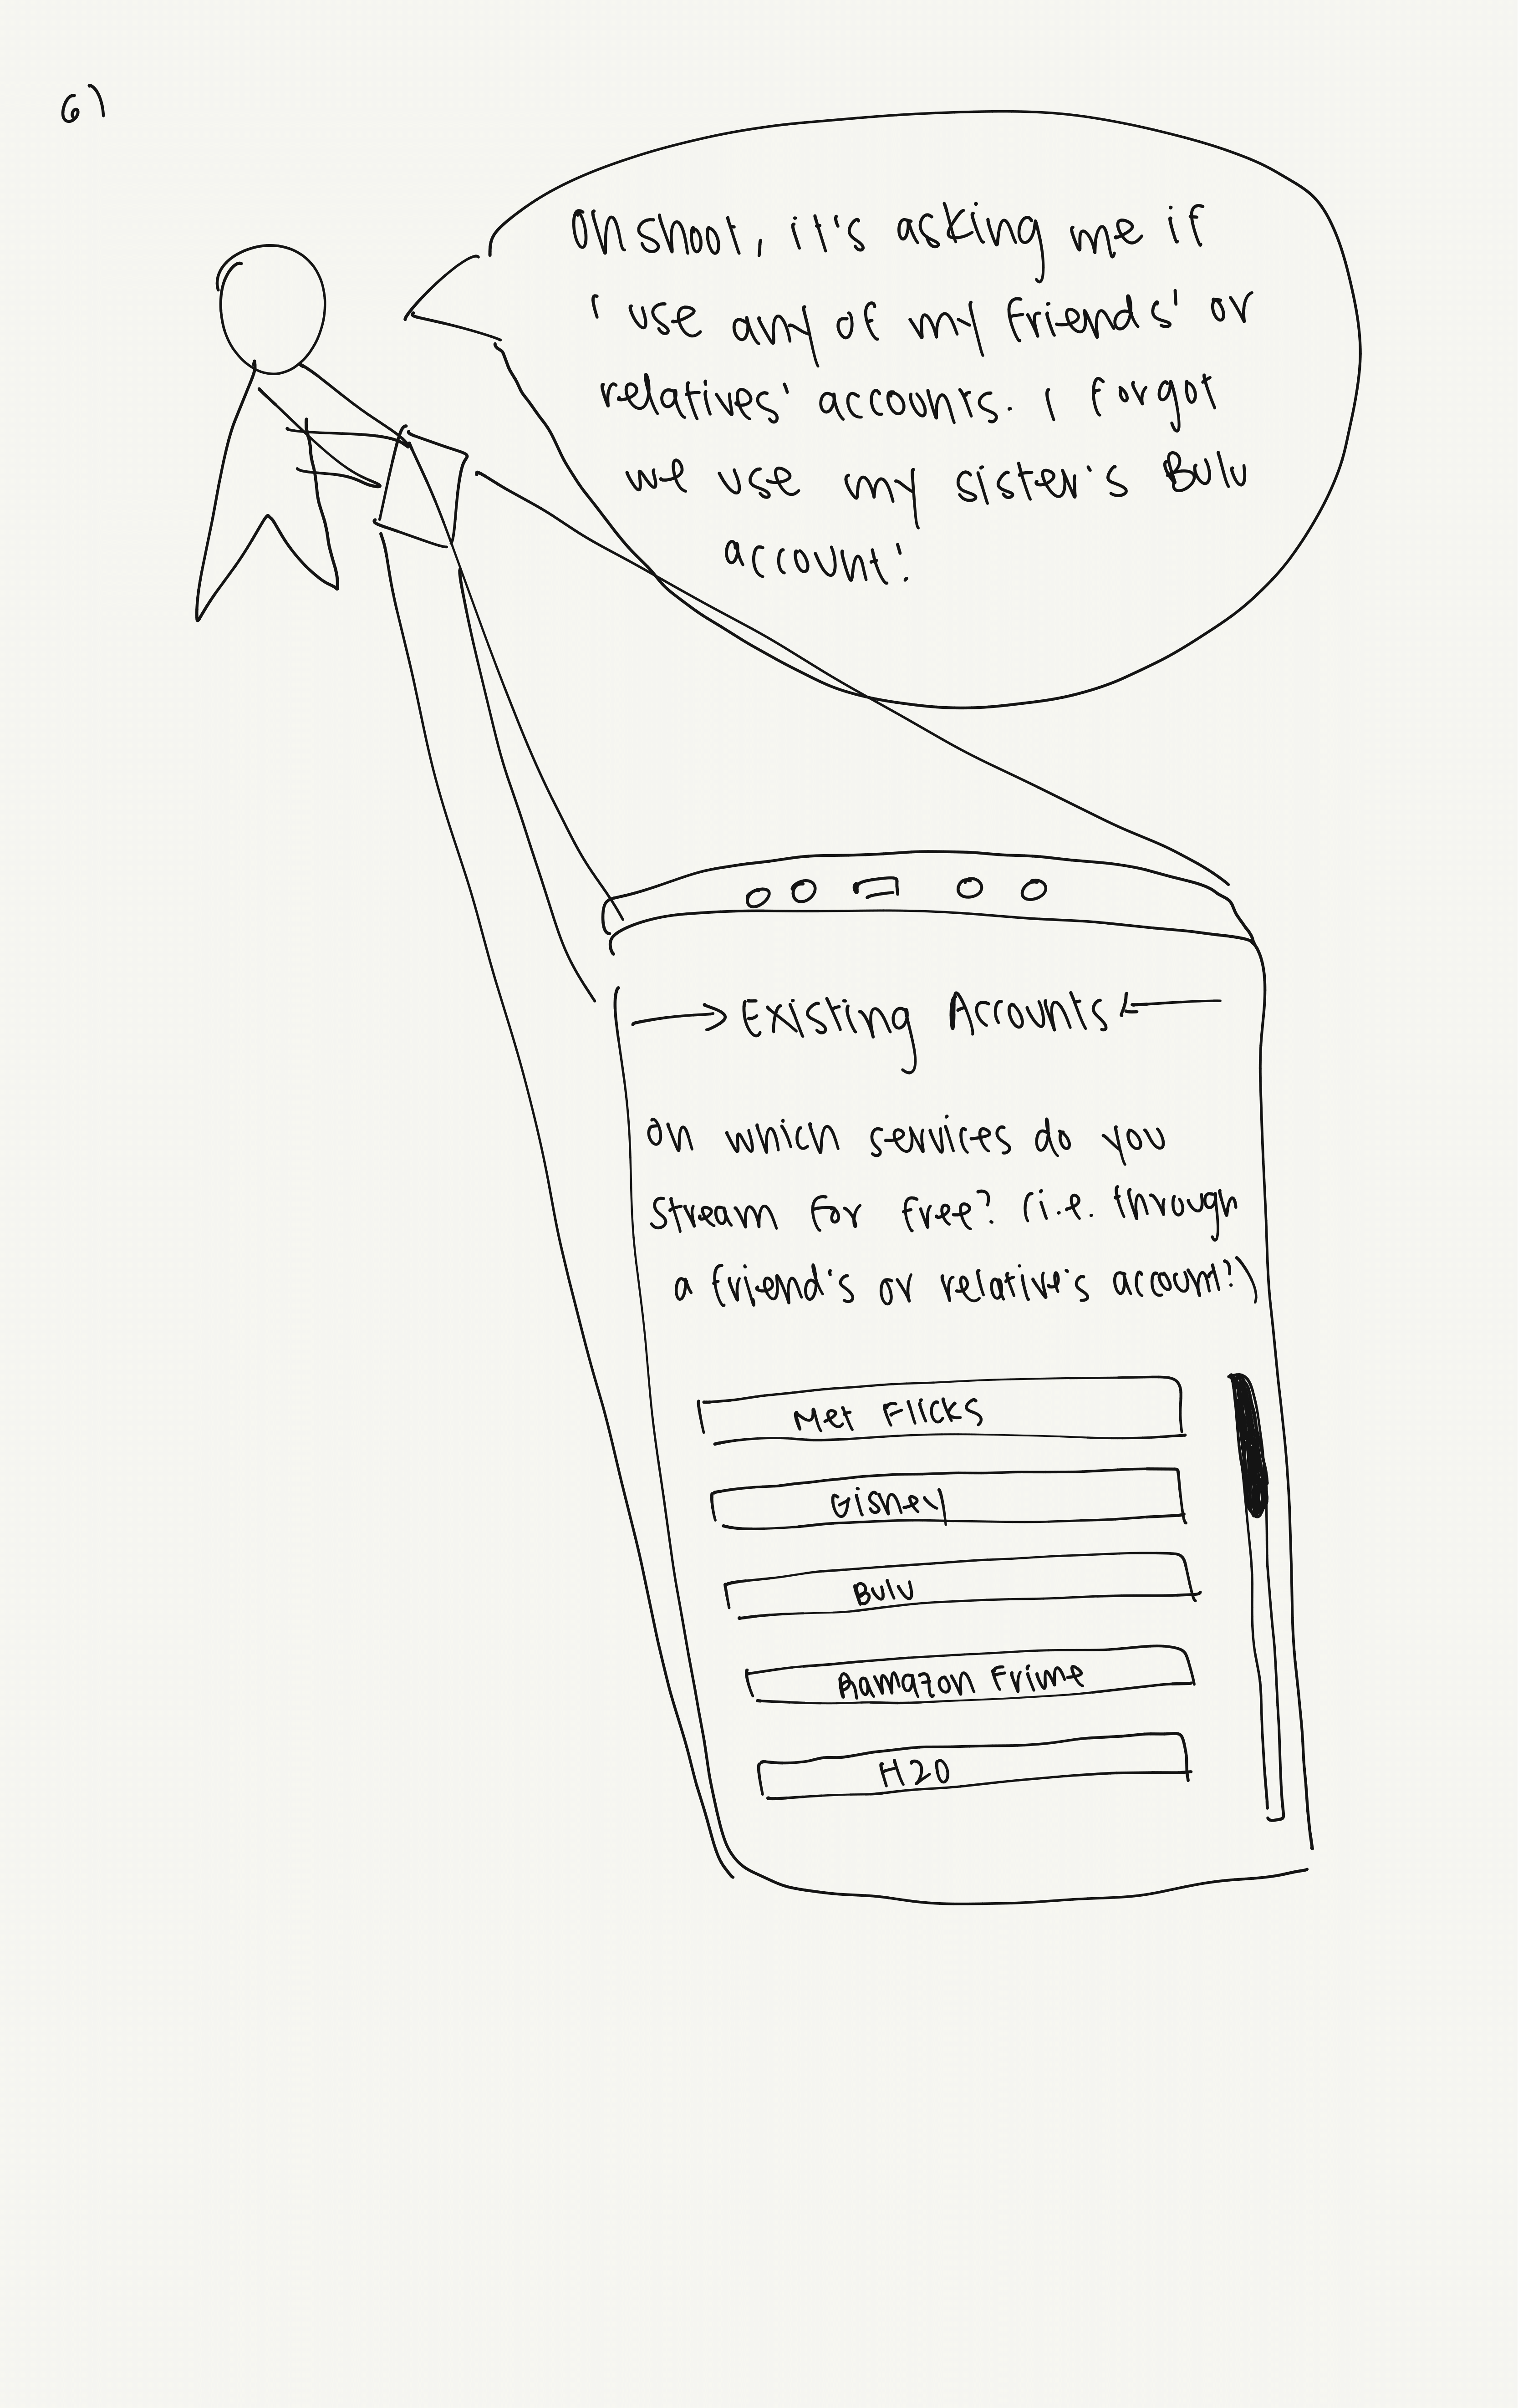 6)
Oh shoot, it's asking me if
I use any of my friends' or
relatives' accounts. I forgot
we use my sister's Bulu
account!
→ Existing Accounts ←
On which services do you
stream for free? (i.e. through
a friend's or relative's account?)
Met Flicks
Gisney
Bulu
Aamazon Frime
H20